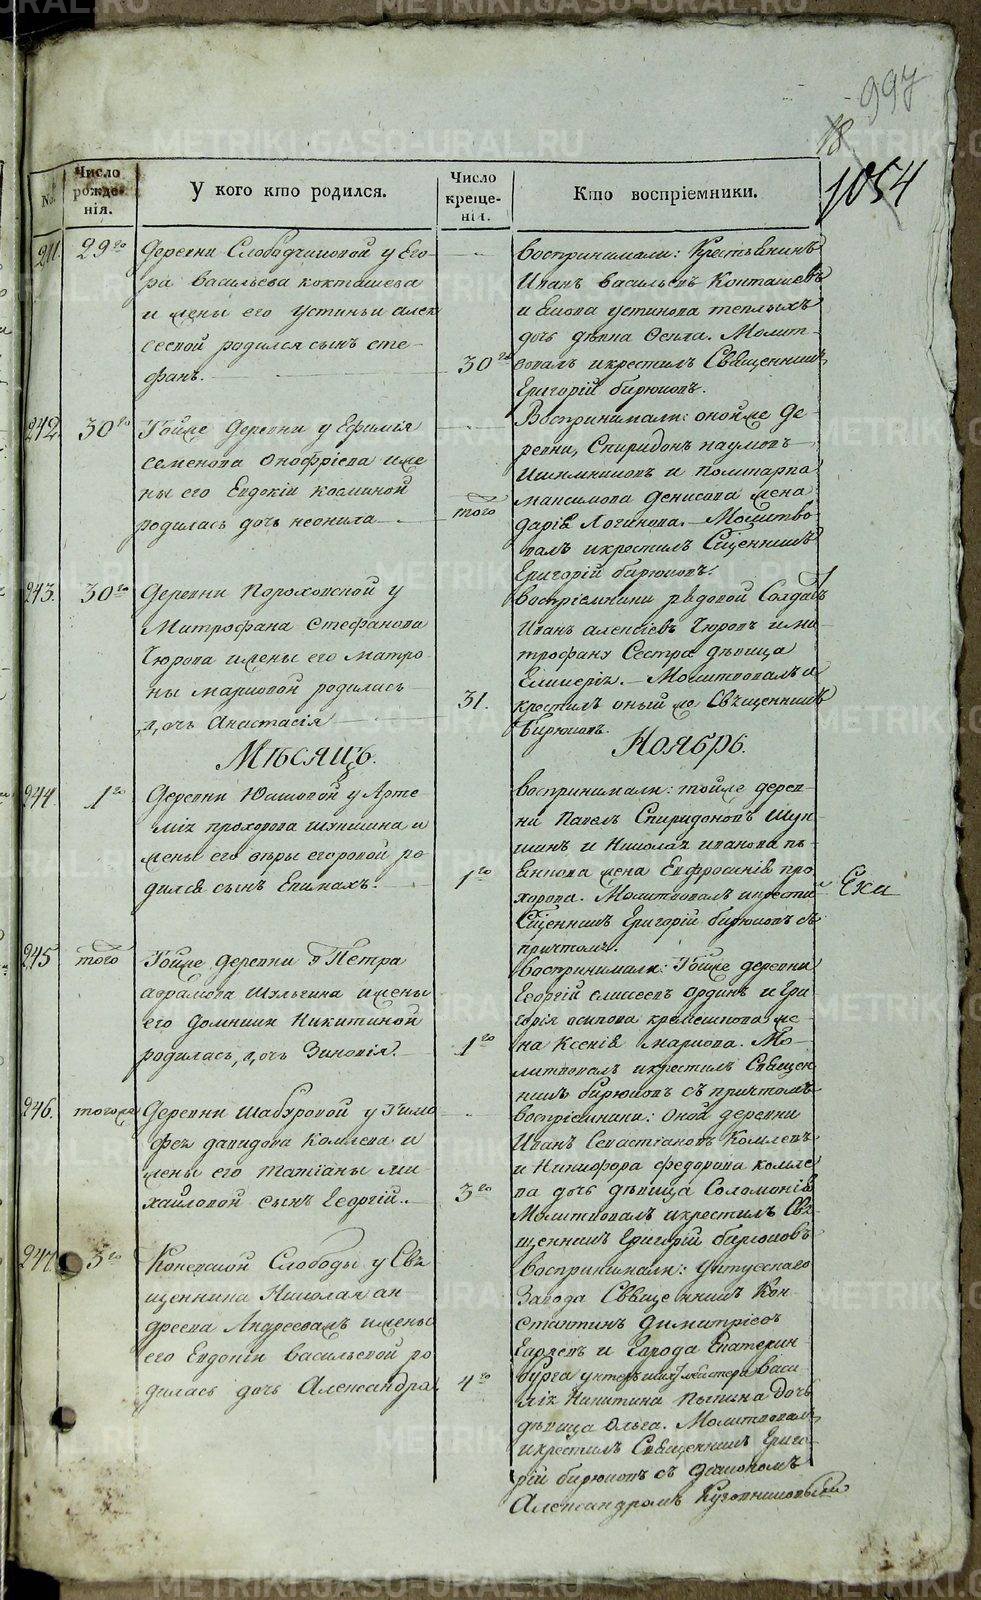 997
18
1054
№
Число рожде-
нія.
У кого кто родился.
Число
креще-
нія.
Кто воспріемники.
241.
29го
Деревни Слободчиковой у Его-
ра Васильева Кокташева
и жены его Устиньи Алек
сеевой родился сынъ Сте-
фанъ.
30го
воспринимали: Крестьянинъ
Иванъ Васильевъ Кокташевъ
и Устинова Теплыхъ
дочь дѣвка Фекла. Молит-
вовалъ и крестилъ Священникъ
Григорій Бирюковъ.
242.
30го
Тойже деревни у Ефимія
Семенова Онофріева и же
ны его Евдокіи Косминой
родилась дочь Неонила
того
Воспринимали: оной же де-
ревни, Спиридонъ Наумовъ
и Поликарпа
Максимова Денисова жена
Дарія Логинова. Молитво
валъ и крестилъ Сщенникъ
Григорій Бирюковъ.
243.
30го
Деревни Пороховской у
Митрофана Стефанова
Чюрова и жены его Матро-
ны Марковой родилась
дочь Анастасія
31.
воспріемники рядовой Солдатъ
Иванъ Алексіевъ Чюровъ и Ми-
трофану Сестра дѣвица
Гликерія. Молитвовалъ и
крестилъ оный же Священникъ
Бирюковъ.
Мѣсяцъ.
Ноябрь.
244
1го
Деревни Юшковой у Арте-
мія Прохорова Шункина и
жены его Вѣры Егоровой ро-
дился сынъ Епимахъ.
1го
воспринимали: тойже дерев-
ни Павелъ Спиридоновъ Шун-
кинъ и Николая Иванова Пь-
янкова жена Евфросинія Про-
хорова. Молитвовалъ и крестил
Сщенникъ Григорій Бирюковъ съ
причтомъ.
245
того
Тойже деревни у Петра
Аврамова Шульгина и жены
его Домники Никитиной
родилась дочь Зиновія.
1го
воспринимали: Тойже деревни
Георгій Елисеевъ Ординъ и Гри
горія Осипова Кремешкова же-
на Ксенія Маркова. Мо-
литвовалъ и крестилъ Священ
никъ Бирюковъ съ причтомъ
246.
тогоже
Деревни Шабуровой у Тимо
фея Давидова Комлева и
жены его Татіаны Ми-
хайловой сынъ Георгій.
3го
воспріемники: Оной деревни
Иванъ Севастіановъ Комлевъ
и Никифора Федорова Комле
ва дочь дѣвица Соломонія
Молитвовалъ и крестилъ Свя-
щенникъ Григорій Бирюковъ
247.
3го
Коневской Слободы у Свя
щенника Николая Ан-
дреева и жены
его Евдокіи Васильевой ро
дилась дочь Александра
4го
воспринимали:
Завода Священникъ Кон-
стантинъ Димитріевъ
и Города Екатерин
бурга Васи
лія Никитина Пылина дочь
дѣвица Ольга. Молитвовалъ
и крестилъ Священникъ Григо-
рій Бирюковъ съ діакономъ
Александромъ Кузовниковымъ